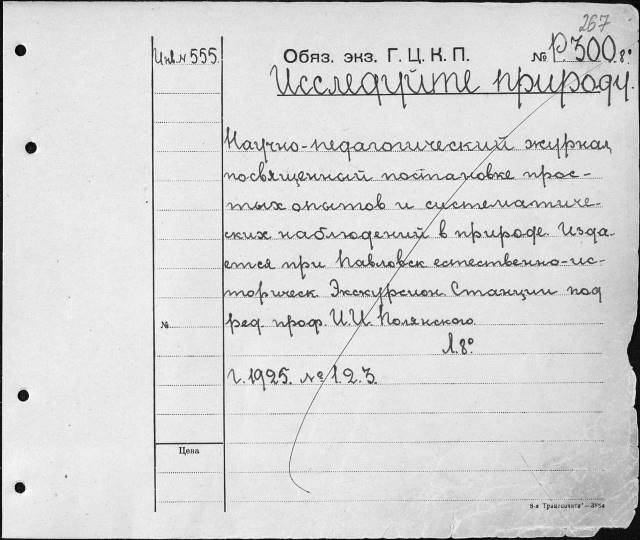 267
Инв. № 555. Обяз. экз. Г. Ц. К. П. № Р.300.8°
Исследуйте природу.
Научно-педагогический журнал,
посвященный постановке прос-
тых опытов и систематиче-
ских наблюдений в природе. Изда-
ется при Павловск естественно-ис-
торическ. Экскурсион. Станции под
№ ред. проф. И.И. Полянского.
Л. 8°.
г. 1925. № 1. 2. 3.
Цена